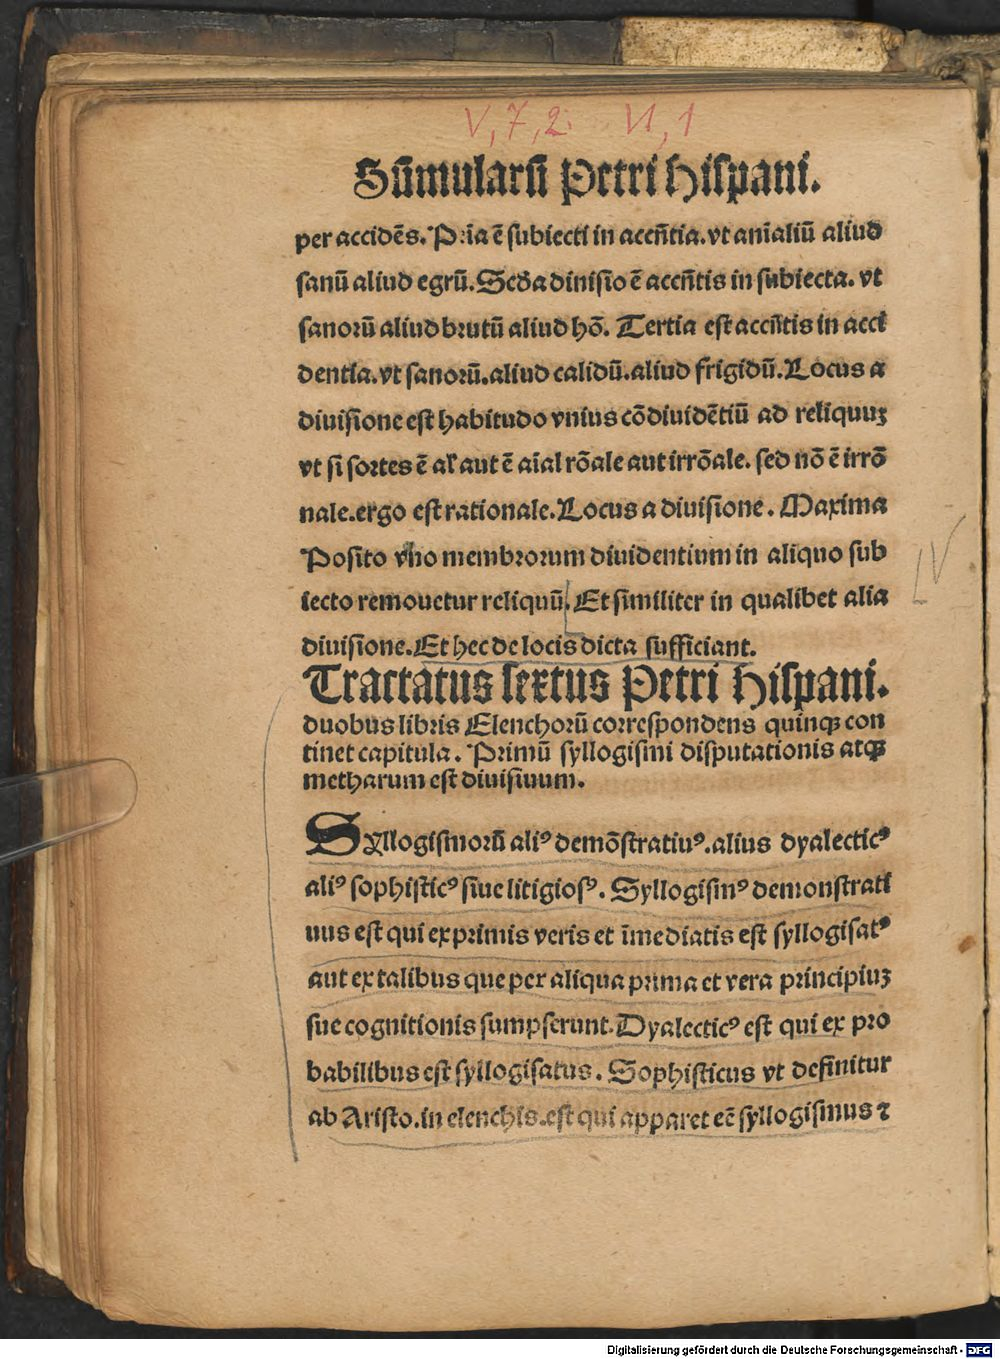 V, 7, 2. VI, 1
Sūmularū Petri Hiſpani.
per accidēs. Pria ē ſubiecti in accñtia. vt anīaliū aliud
ſanū aliud egrū. Scda diniſio ē accñtis in ſubiecta. vt
ſanorū aliud brutū aliud hō. Tertia eſt accñtis in acci
dentia. vt ſanorū. aliud calidū. aliud frigidū. Locus a
diuiſione eſt habitudo vnius cōdiuidētiū ad reliquuꝫ
vt ſi ſortes ē aīal aut ē aīal rōale aut irrōale. ſed nō ē irrō
nale. ergo eſt rationale. Locus a diuiſione. Maxima
Poſito vno membrorum diuidentium in aliquo ſub
iecto remouetur reliquū. Et ſimiliter in qualibet alia
diuiſione. Et hec de locis dicta ſufficiant.
IV
Tractatus ſextus Petri Hiſpani.
duobus libris Elenchorū correſpondens quinqꝫ con
tinet capitula. Primū ſyllogiſmi diſputationis atqꝫ
metharum eſt diuiſiuum.
Syllogiſmorū aliꝰ demōſtratiuꝰ. alius dyalecticꝰ
aliꝰ ſophiſticꝰ ſiue litigioſꝰ. Syllogiſmꝰ demonſtrati
uus eſt qui ex primis veris et īmediatis eſt ſyllogiſatꝰ
aut ex talibus que per aliqua prima et vera principiuꝫ
ſue cognitionis ſumpſerunt. Dyalecticꝰ eſt qui ex pro
babilibus eſt ſyllogiſatus. Sophiſticus vt definitur
ab Ariſto. in elenchis. eſt qui apparet eē ſyllogiſmus ⁊
Digitalisierung gefördert durch die Deutsche Forschungsgemeinschaft - DFG